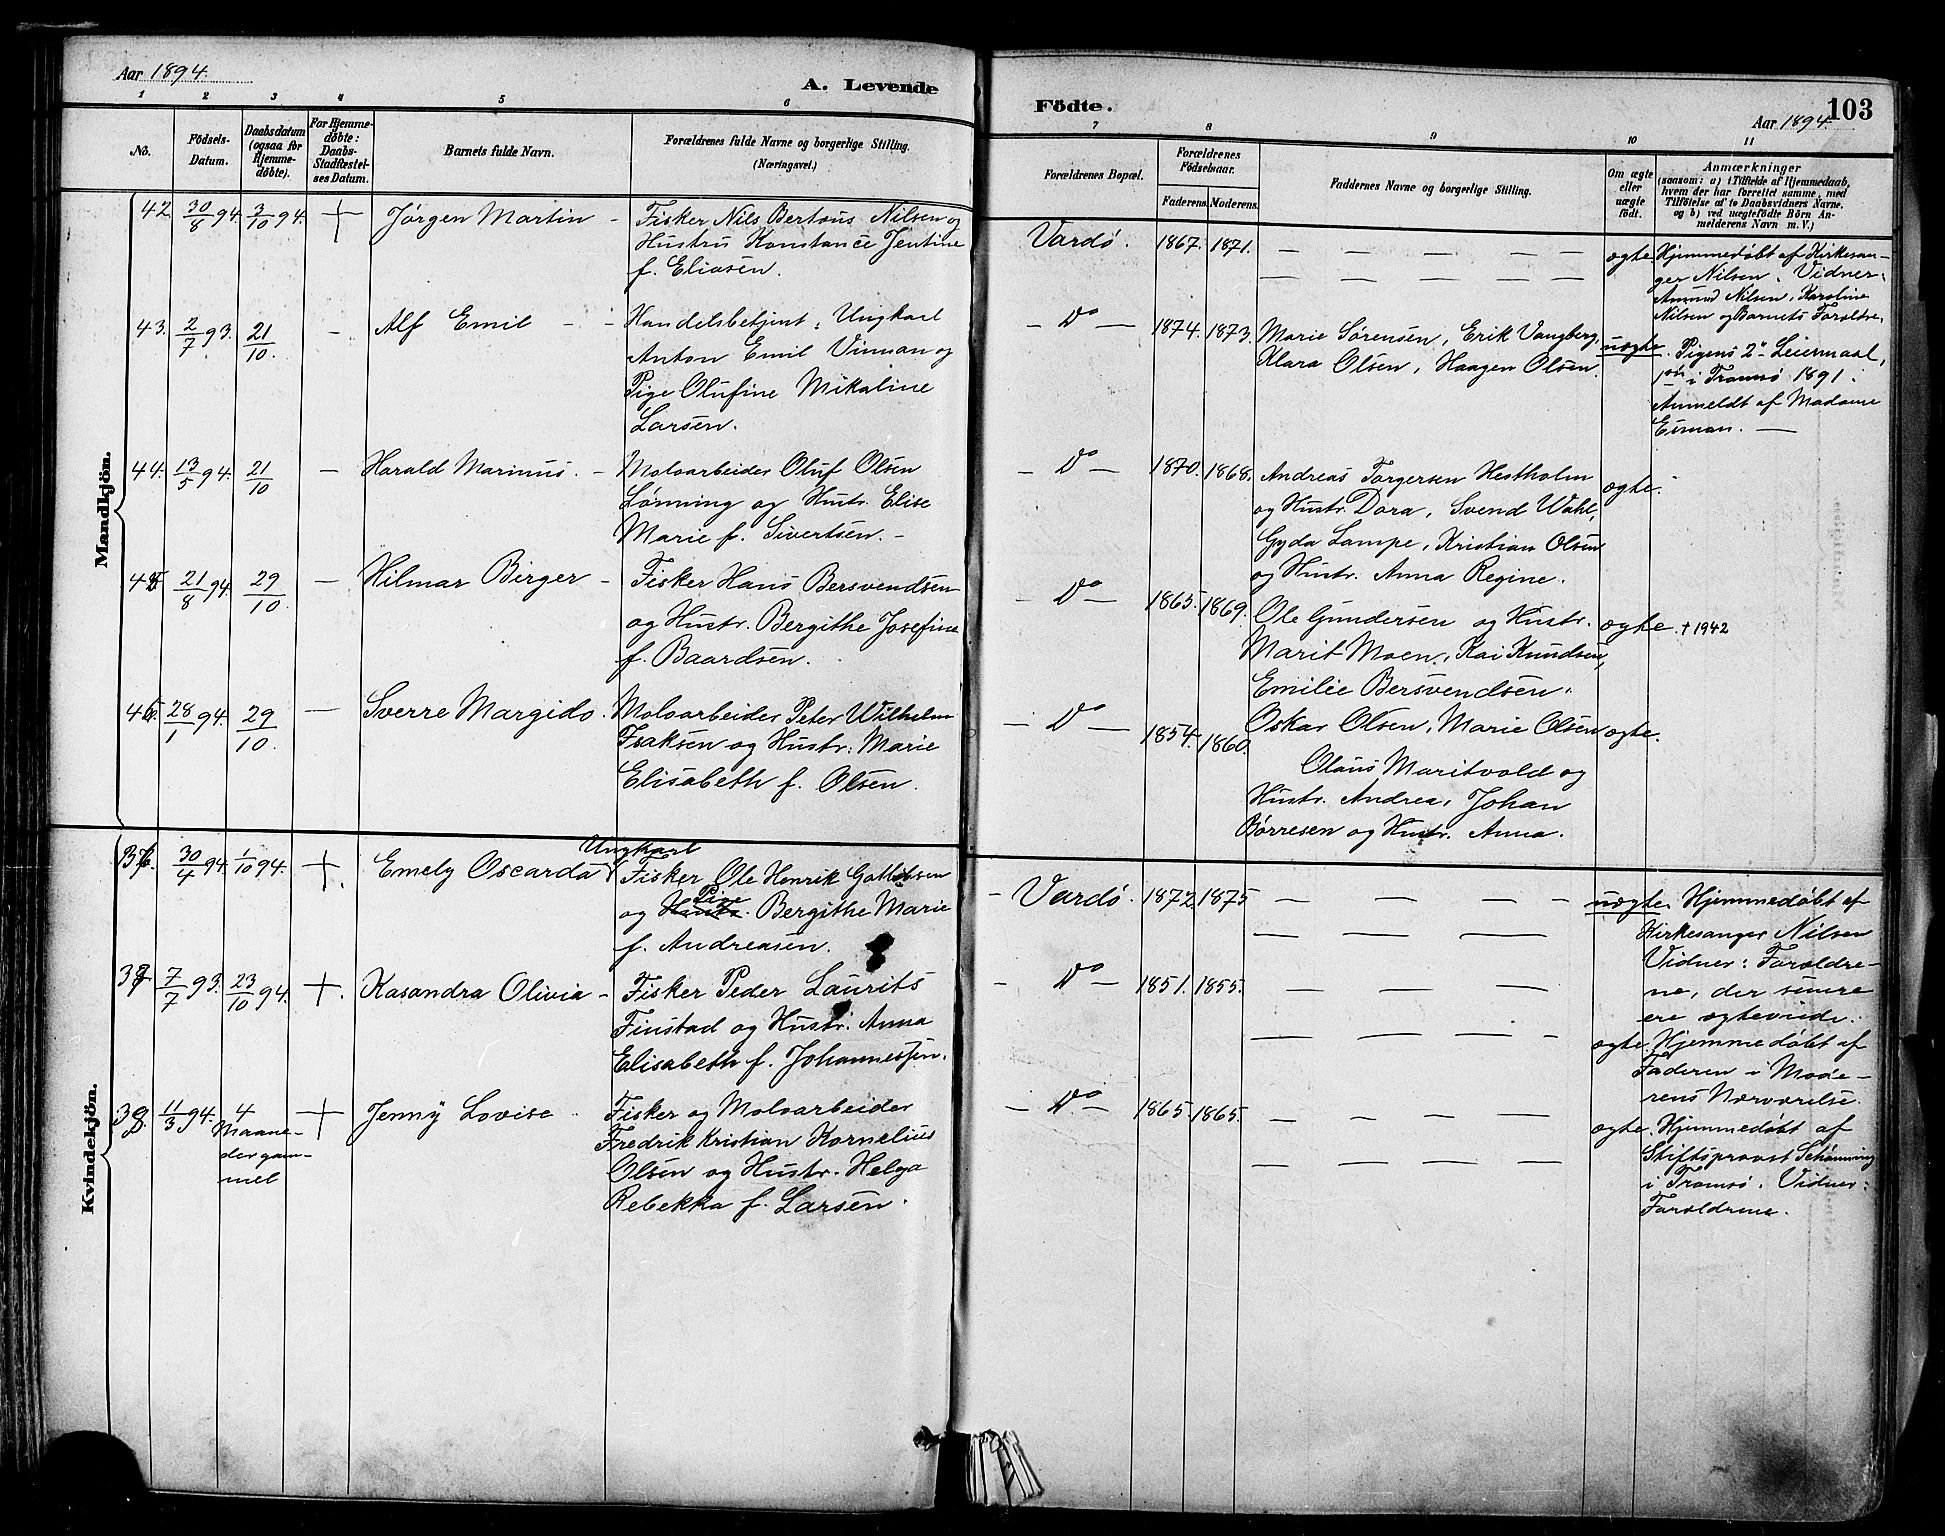 Aar 1894.
A. Levende
1 2 3 4 5 6
No.
Födsels-
Datum.
Daabsdatum
(ogsaa for
Hjemme-
døbte).
For Hjemme-
døbte:
Daabs-
Stadfæstel-
ses Datum.
Barnets fulde Navn.
Forældrenes fulde Navne og borgerlige Stilling.
(Næringsvei.)
Mandkjön.
42 30/8 94. 3/10 94. + Jørgen Martin -
Fisker Nils Bertəus Nilsen og
Hustru Konstance Jentine
f. Eliasen.
43. 2/7 93. 21/10 - Alf Emil -
Handelsbetjent, Ungkarl
Anton Emil Vinman og
Pige Olufine Mikaline
Larsen.
44. 13/5 94. 21/10 - Harald Marinus. -
Moloarbeider Oluf Olsen
Lønning og Hustr. Elise
Marie f. Sivertsen. -
45 21/8 94. 29/10. - Hilmar Birger -
Fisker Hans Bersvendsen
og Hustr. Bergithe Josefine
f. Baardsen.
46. 28/1 94. 29/10. - Sverre Margido.
Moloarbeider Peter Wilhelm
Isaksen og Hustr. Marie
Elisabeth f. Olsen.
Kvindekjön.
36. 30/4 94. 1/10 94. +. Emely Oscarda
Ungkarl
Fisker Ole Henrik Gottlibsen
Pige
og Hustr. Bergithe Marie
f. Andreasen.
37 7/7 93. 23/10 94. +. Kasandra Olivia -
Fisker Peder Laurits
Finstad og Hustr. Anna
Elisabeth f. Johannessen.
38. 11/3 94. 4 + Jenny Lovise
Maane-
der gam-
mel
Fisker og Moloarbeider
Fredrik Kristian Kornelius
Olsen og Hustr. Helga
Rebekka f. Larsen.
Födte.
103
Aar 1894.
7 8 9 10 11
Forældrenes Bopæl.
Forældrenes
Födselsaar.
Faderens. Moderens.
Faddernes Navne og borgerlige Stilling.
Om ægte
eller
uægte
födt.
Anmærkninger
(saasom: a) i Tilfælde af Hjemmedaab,
hvem der har forrettet samme, med
Tilföielse af to Daabsvidners Navne,
og b) ved uægtefödte Börn An-
melderens Navn m. V.)
Vardø. 1867. 1871. — — — — — ægte.
— — — — —
Hjemmedøbt af Kirkesan-
ger Nilsen. Vidner:
Amund Nilsen, Karoline
Nilsen og Barnets Forældre.
- Do - 1874. 1873. Marie Sørensen, Erik Vangberg,
Klara Olsen, Haagen Olsen.
uægte.
Pigens 2det Leiermaal,
1ste i Tromsø 1891.
Anmeldt af Madame
Esman. —
- Do - 1870. 1868. Andreas Torgersen Hestholm
og Hustr. Dora, Svend Wahl,
Gyda Lampe, Kristian Olsen
og Hustr. Anna Regine.
ægte.
- Do - 1865. 1869. Ole Gundersen og Hustr.
Marit Moen, Kai Knudsen,
Emilie Bersvendsen.
ægte. † 1942
- Do - 1854. 1860. Oskar Olsen, Marie Olsen
Olaus Maritvold og
Hustr. Andrea, Johan
Børresen og Hustr. Anna.
ægte.
- Vardø. 1872 1875 — — — — —
— — — —
uægte. Hjemmedøbt af
Kirkesanger Nilsen
Vidner: Foraldre-
ne, der senere
ere ægteviede.
- Do - 1851. 1855. — — — —
— — — —
ægte. Hjemmedøbt af
Faderen i Mode-
rens Nærværelse.
- Do - 1865. 1865. — — — —
— — — —
ægte. Hjemmedøbt af
Stiftsprovst Schønning
i Tromsø. Vidner:
Forældrene.